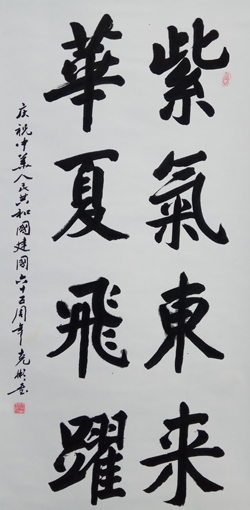 紫氣東来
華夏飛躍
庆祝中华人民共和國建國六十五周年克彬书